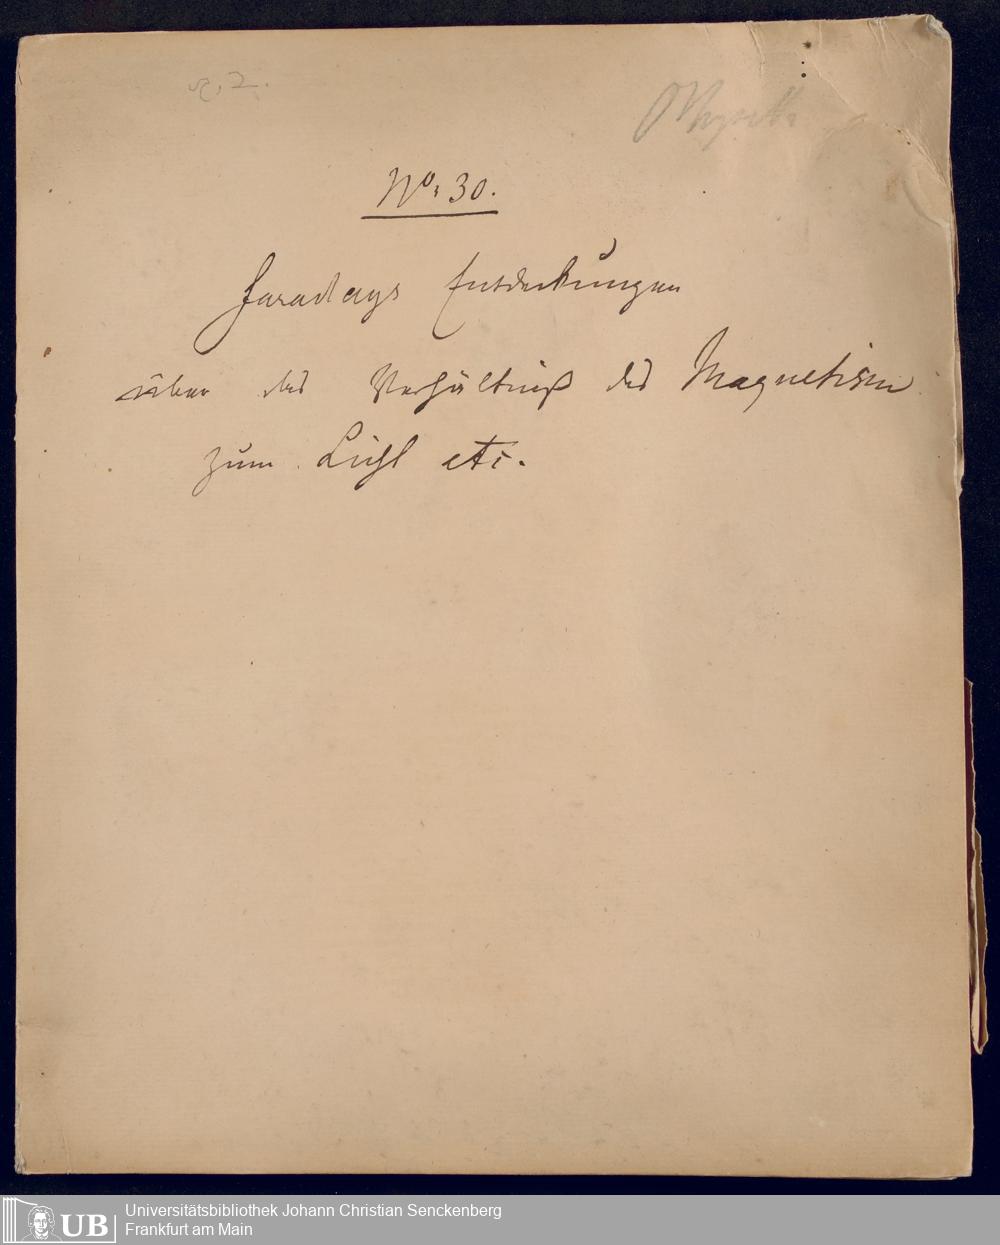 Physik
No. 30.
Faradays Entdeckungen
über das Verhältniß des Magnetism
zum Licht etc.
UB
Universitätsbibliothek Johann Christian Senckenberg
Frankfurt am Main